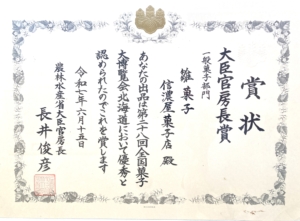 賞状
大臣官房長賞
一般菓子部門
雛菓子
信濃屋菓子店 殿
あなたの出品は第二十八回全国菓子
大博覧会北海道において優秀と
認められたのでこれを賞します
令和七年六月十五日
農林水産省大臣官房長
長井俊彦